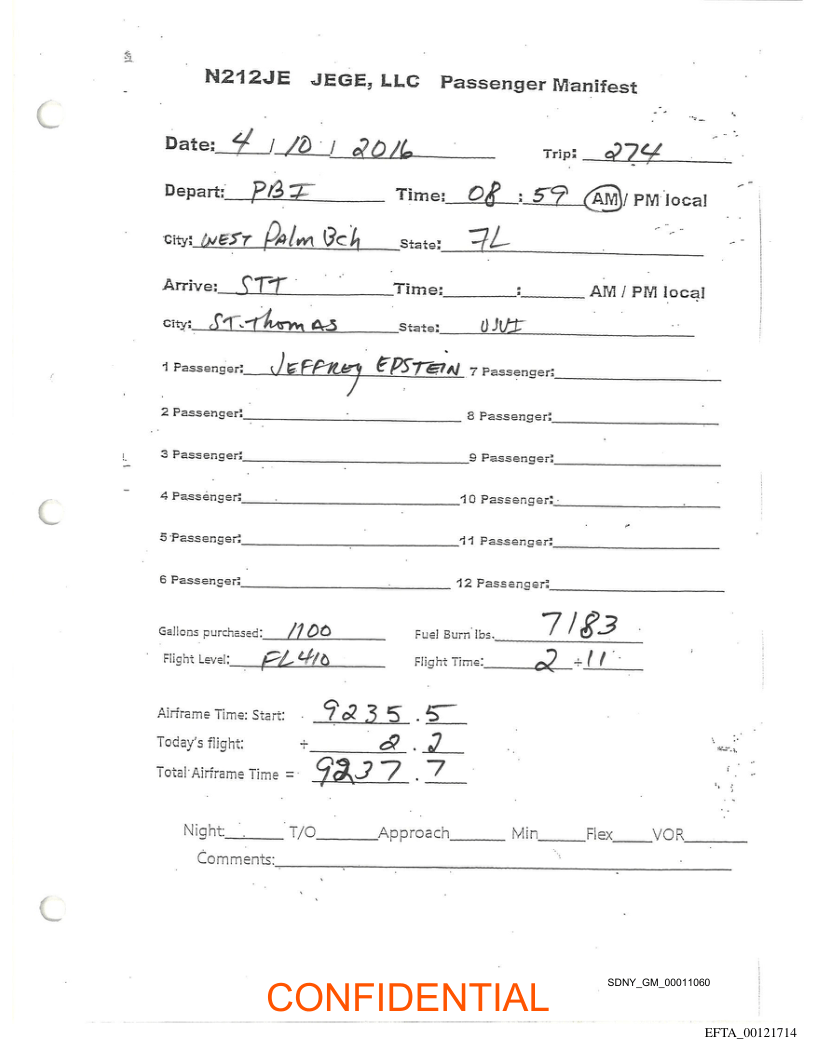 N212JE JEGE, LLC Passenger Manifest
Date: 4 / 10 / 2016 Trip: 274
Depart: PBI Time: 08 : 59 AM / PM local
City: WEST Palm Bch State: FL
Arrive: STT Time: : AM / PM local
City: ST. Thomas State: USVI
1 Passenger: JEFFREY EPSTEIN 7 Passenger:
2 Passenger: 8 Passenger:
3 Passenger: 9 Passenger:
4 Passenger: 10 Passenger:
5 Passenger: 11 Passenger:
6 Passenger: 12 Passenger:
Gallons purchased: 1100 Fuel Burn lbs. 7183
Flight Level: FL410 Flight Time: 2 + 11
Airframe Time: Start: 9235.5
Today's flight: + 2.2
Total Airframe Time = 9237.7
Night: T/O Approach Min Flex VOR
Comments:
CONFIDENTIAL
SDNY_GM_00011060
EFTA_00121714